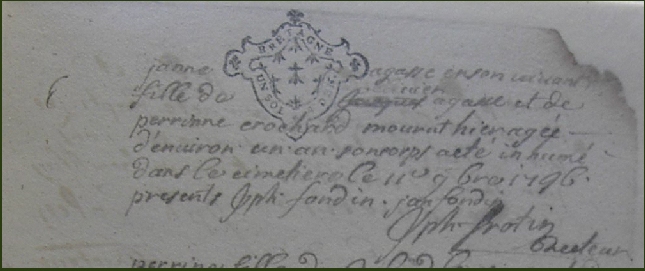 BRETAGNE
UN SOL
janne agasse en son vivant
fille de agasse et de
perrinne crochard mourut hier agée
d'environ un an son corps a eté inhumé
dans le cimetiere le 11e 9bre 1796.
presents Jph. fondin. jan fondin
Jph. frotin
perrine fille de